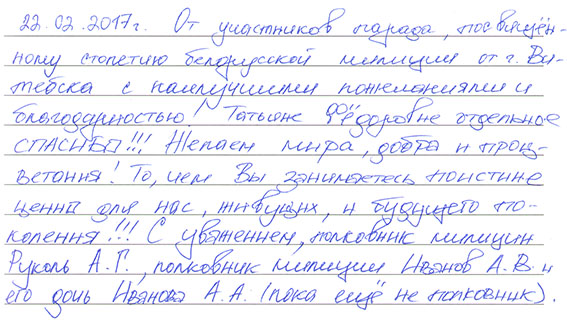 22.02.2017г. От участников парада, посвящён-
ному столетию белорусской милиции от г. Ви-
тебска с наилучшими пожеланиями и
благодарностью! Татьяне Фёдоровне отдельное
СПАСИБО!!! Желаем мира, добра и проц-
ветания! То, чем Вы занимаетесь поистине
ценно для нас, живущих, и будущего по-
коления!!! С уважением, полковник милиции
Руколь А.Г., полковник милиции Иванов А.В. и
его дочь Иванова А.А. (пока ещё не полковник).